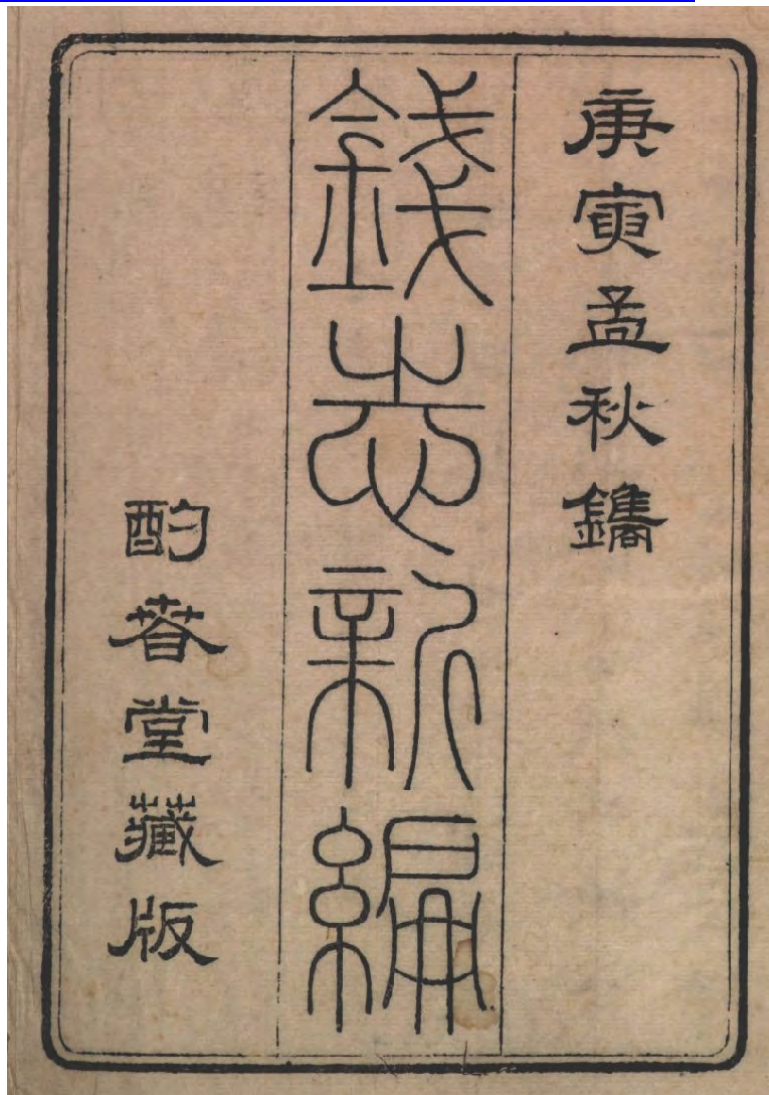 庚寅孟秋鐫
錢志新編
酌春堂藏版